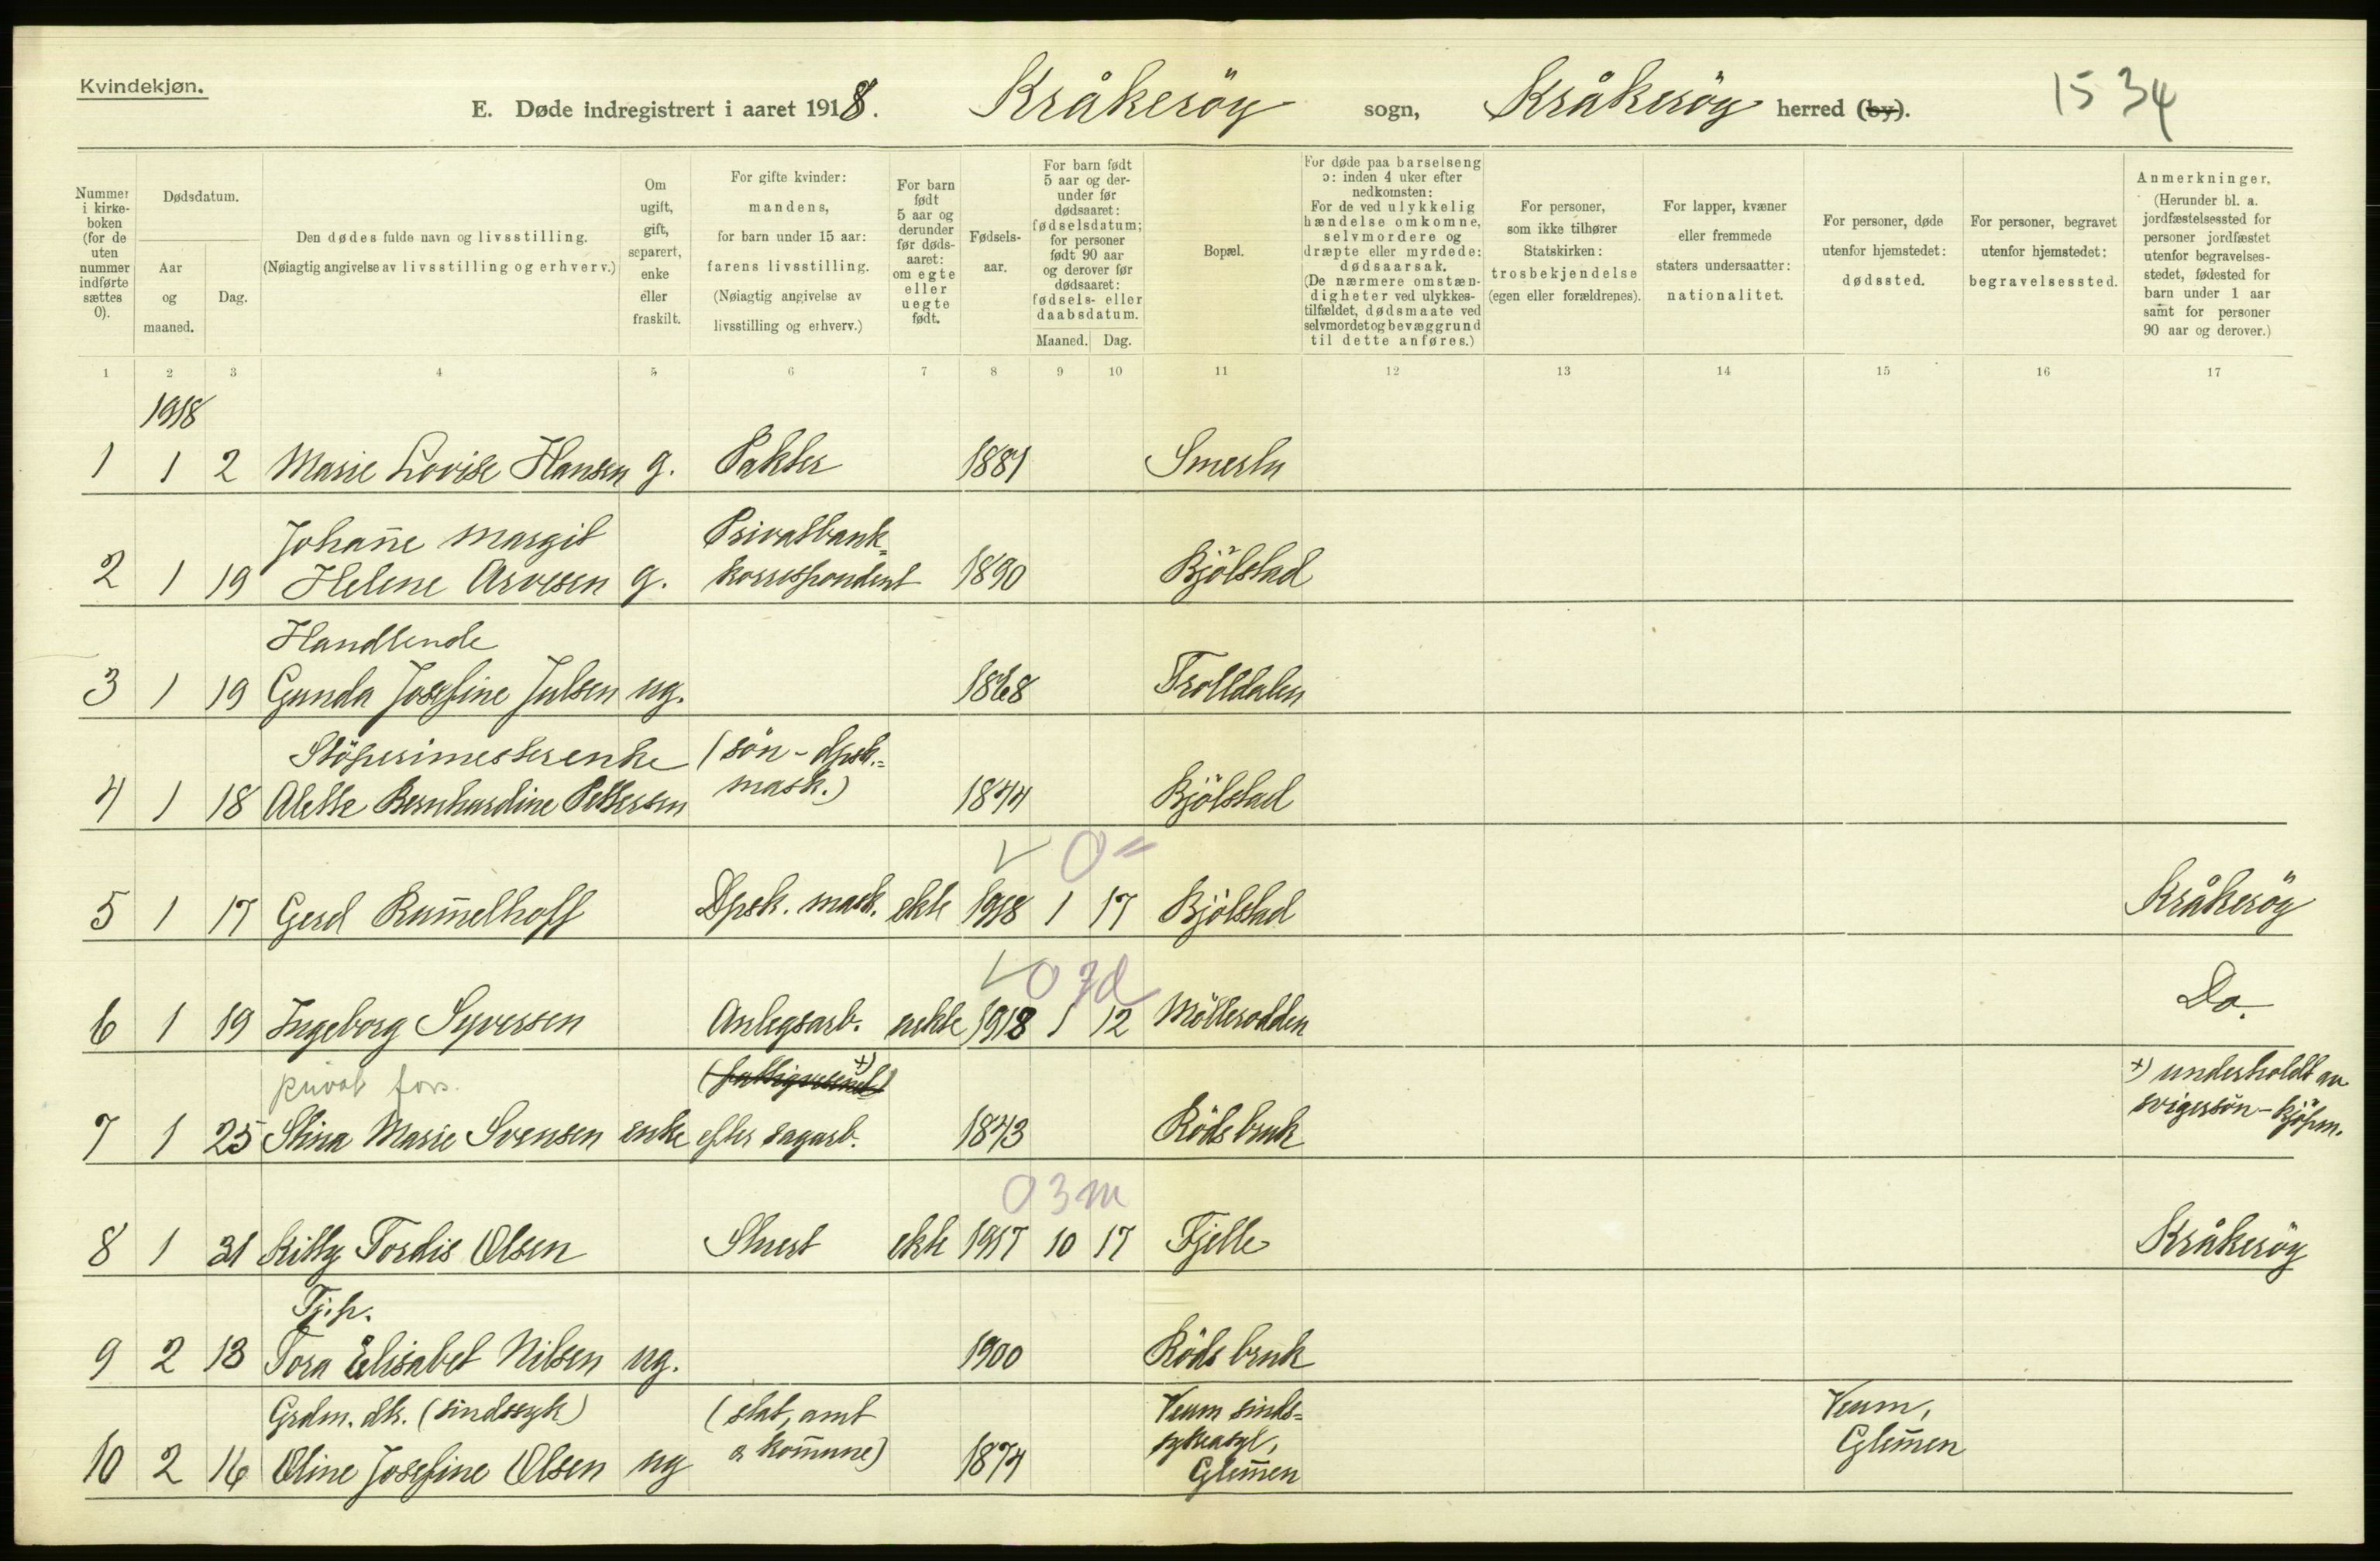 Kvindekjøn.
E. Døde indregistrert i aaret 1918. Kråkeröy sogn, Kråkeröy herred (by).
15 34
Nummer i kirke- boken (for de uten nummer indførte sættes 0).
Dødsdatum.
Aar og maaned.
Dag.
Den dødes fulde navn og livsstilling.
(Nøiagtig angivelse av livsstilling og erhverv.)
Om ugift, gift, separert, enke eller fraskilt.
For gifte kvinder: mandens, for barn under 15 aar: farens livsstilling. (Nøiagtig angivelse av livsstilling og erhverv.)
For barn født 5 aar og derunder før døds- aaret: om egte eller uegte født.
Fødsels- aar.
For barn født 5 aar og der- under før dødsaaret: fødselsdatum; for personer født 90 aar og derover før dødsaaret: fødsels- eller daabsdatum.
Maaned. Dag.
Bopæl.
For døde paa barselseng ɔ: inden 4 uker efter nedkomsten: For de ved ulykkelig hændelse omkomne, selvmordere og dræpte eller myrdede: dødsaarsak. (De nærmere omstæn- digheter ved ulykkes- tilfældet, dødsmaate ved selvmordet og bevæggrund til dette anføres.)
For personer, som ikke tilhører Statskirken: trosbekjendelse (egen eller forældrenes).
For lapper, kvæner eller fremmede staters undersaatter: nationalitet.
For personer, døde utenfor hjemstedet: dødssted.
For personer, begravet utenfor hjemstedet: begravelsessted.
Anmerkninger. (Herunder bl. a. jordfæstelsessted for personer jordfæstet utenfor begravelses- stedet, fødested for barn under 1 aar samt for personer 90 aar og derover.)
1 2 3 4 5 6 7 8 9 10 11 12 13 14 15 16 17
1918
1 1 2 Marie Lovise Hansen g. Pakter 1881 Smertu
Johan̄e Margit Privatbank=
2 1 19 Helene Arvesen g. korrespondent 1890 Bjölstad
Handlende
3 1 19 Gunda Josefine Julsen ug. 1868 Trolldalen
Stöperimesterenke (sön - dpsk.=
4 1 18 Alette Bernhardine Pettersen mask.) 1844 Bjölstad
0 =
5 1 17 Gerd Rum̄elhoff Dpsk. mask. ekte 1918 1 17 Bjölstad Kråkeröy
0 7d
6 1 19 Ingeborg Syversen Anlegsarb. uekte 1918 1 12 Möllerodden Do.
privat fors. (fattigvesenet) +) +) underholdt av
7 1 25 Stina Marie Svensen enke efter sagarb. 1843 Röds bruk svigersön - kjöpm.
0 3 m
8 1 31 Kitty Tordis Olsen Stuert ekte 1917 10 17 Fjelle Kråkeröy
Tj.p.
9 2 13 Tora Elisabet Nilsen ug. 1900 Röds bruk
Grdm. dtr. (sindssyk) (stat, amt Veum sinds= Veum,
10 2 16 Oline Josefine Olsen ug & kom̄une) 1874 sykeasyl, Glem̄en Glem̄en